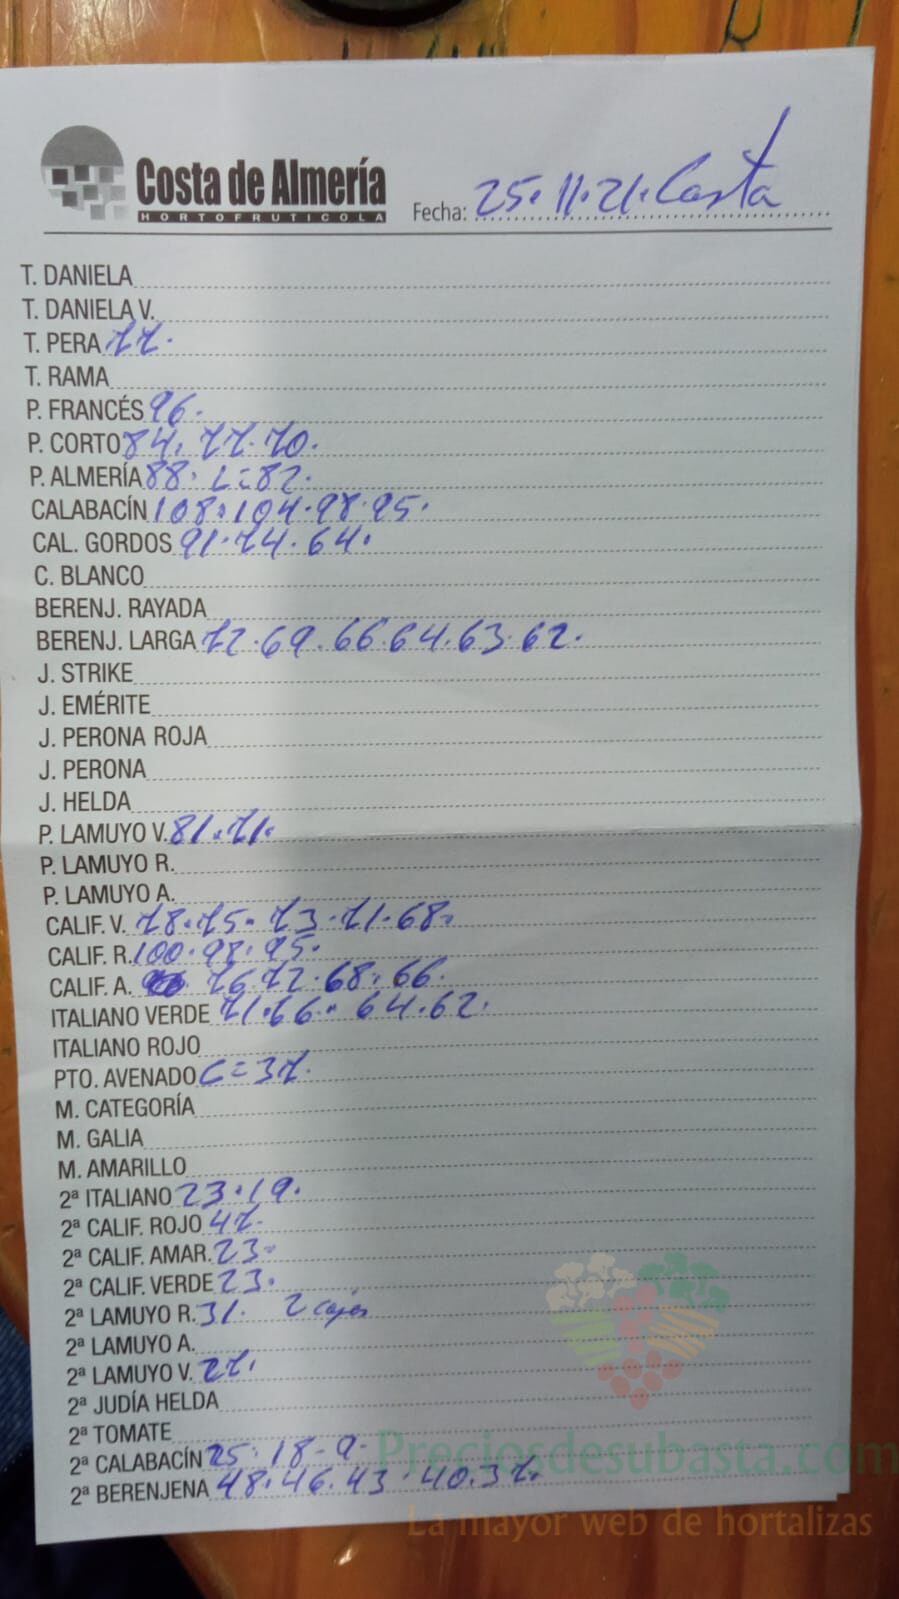 Costa de Almería
HORTOFRUTICOLA
Fecha: 25.11.21. Costa
T. DANIELA
T. DANIELA V.
T. PERA 77.
T. RAMA
P. FRANCÉS 96.
P. CORTO 84. 77. 70.
P. ALMERÍA 88. L=82.
CALABACÍN 108. 104. 98. 95.
CAL. GORDOS 91. 74. 64.
C. BLANCO
BERENJ. RAYADA
BERENJ. LARGA 72. 69. 66. 64. 63. 62.
J. STRIKE
J. EMÉRITE
J. PERONA ROJA
J. PERONA
J. HELDA
P. LAMUYO V. 81. 71.
P. LAMUYO R.
P. LAMUYO A.
CALIF. V. 78. 75. 73. 71. 68.
CALIF. R. 100. 98. 95.
CALIF. A. 76. 72. 68. 66.
ITALIANO VERDE 71. 66. 64. 62.
ITALIANO ROJO
PTO. AVENADO C=37.
M. CATEGORÍA
M. GALIA
M. AMARILLO
2ª ITALIANO 23. 19.
2ª CALIF. ROJO 47.
2ª CALIF. AMAR. 23.
2ª CALIF. VERDE 23.
2ª LAMUYO R. 31. 2 cajas
2ª LAMUYO A.
2ª LAMUYO V. 27.
2ª JUDÍA HELDA
2ª TOMATE
2ª CALABACÍN 25. 18. 9.
2ª BERENJENA 48. 46. 43. 40. 37.
Preciosdesubasta.com
La mayor web de hortalizas